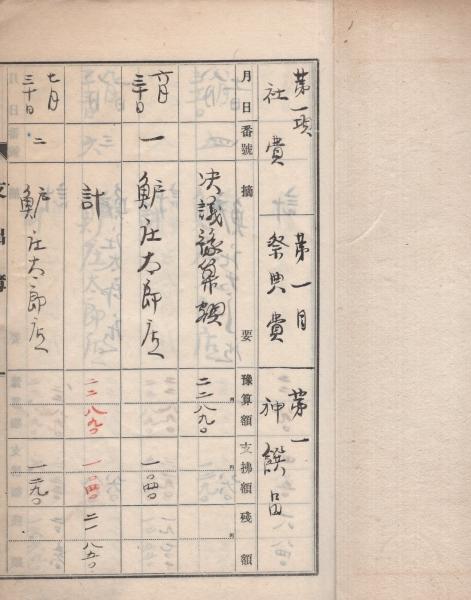 第一項
社費
第一目
祭典費
第一
神饌品
月日 番號 摘要 豫算額 支拂額 殘額
決議豫算額 二二八九〇
六月三十日 一 庄太郎店 一〇四〇
計 二二八九〇 一〇四〇 二一八五〇
七月三十日 二 庄太郎店 一二九〇